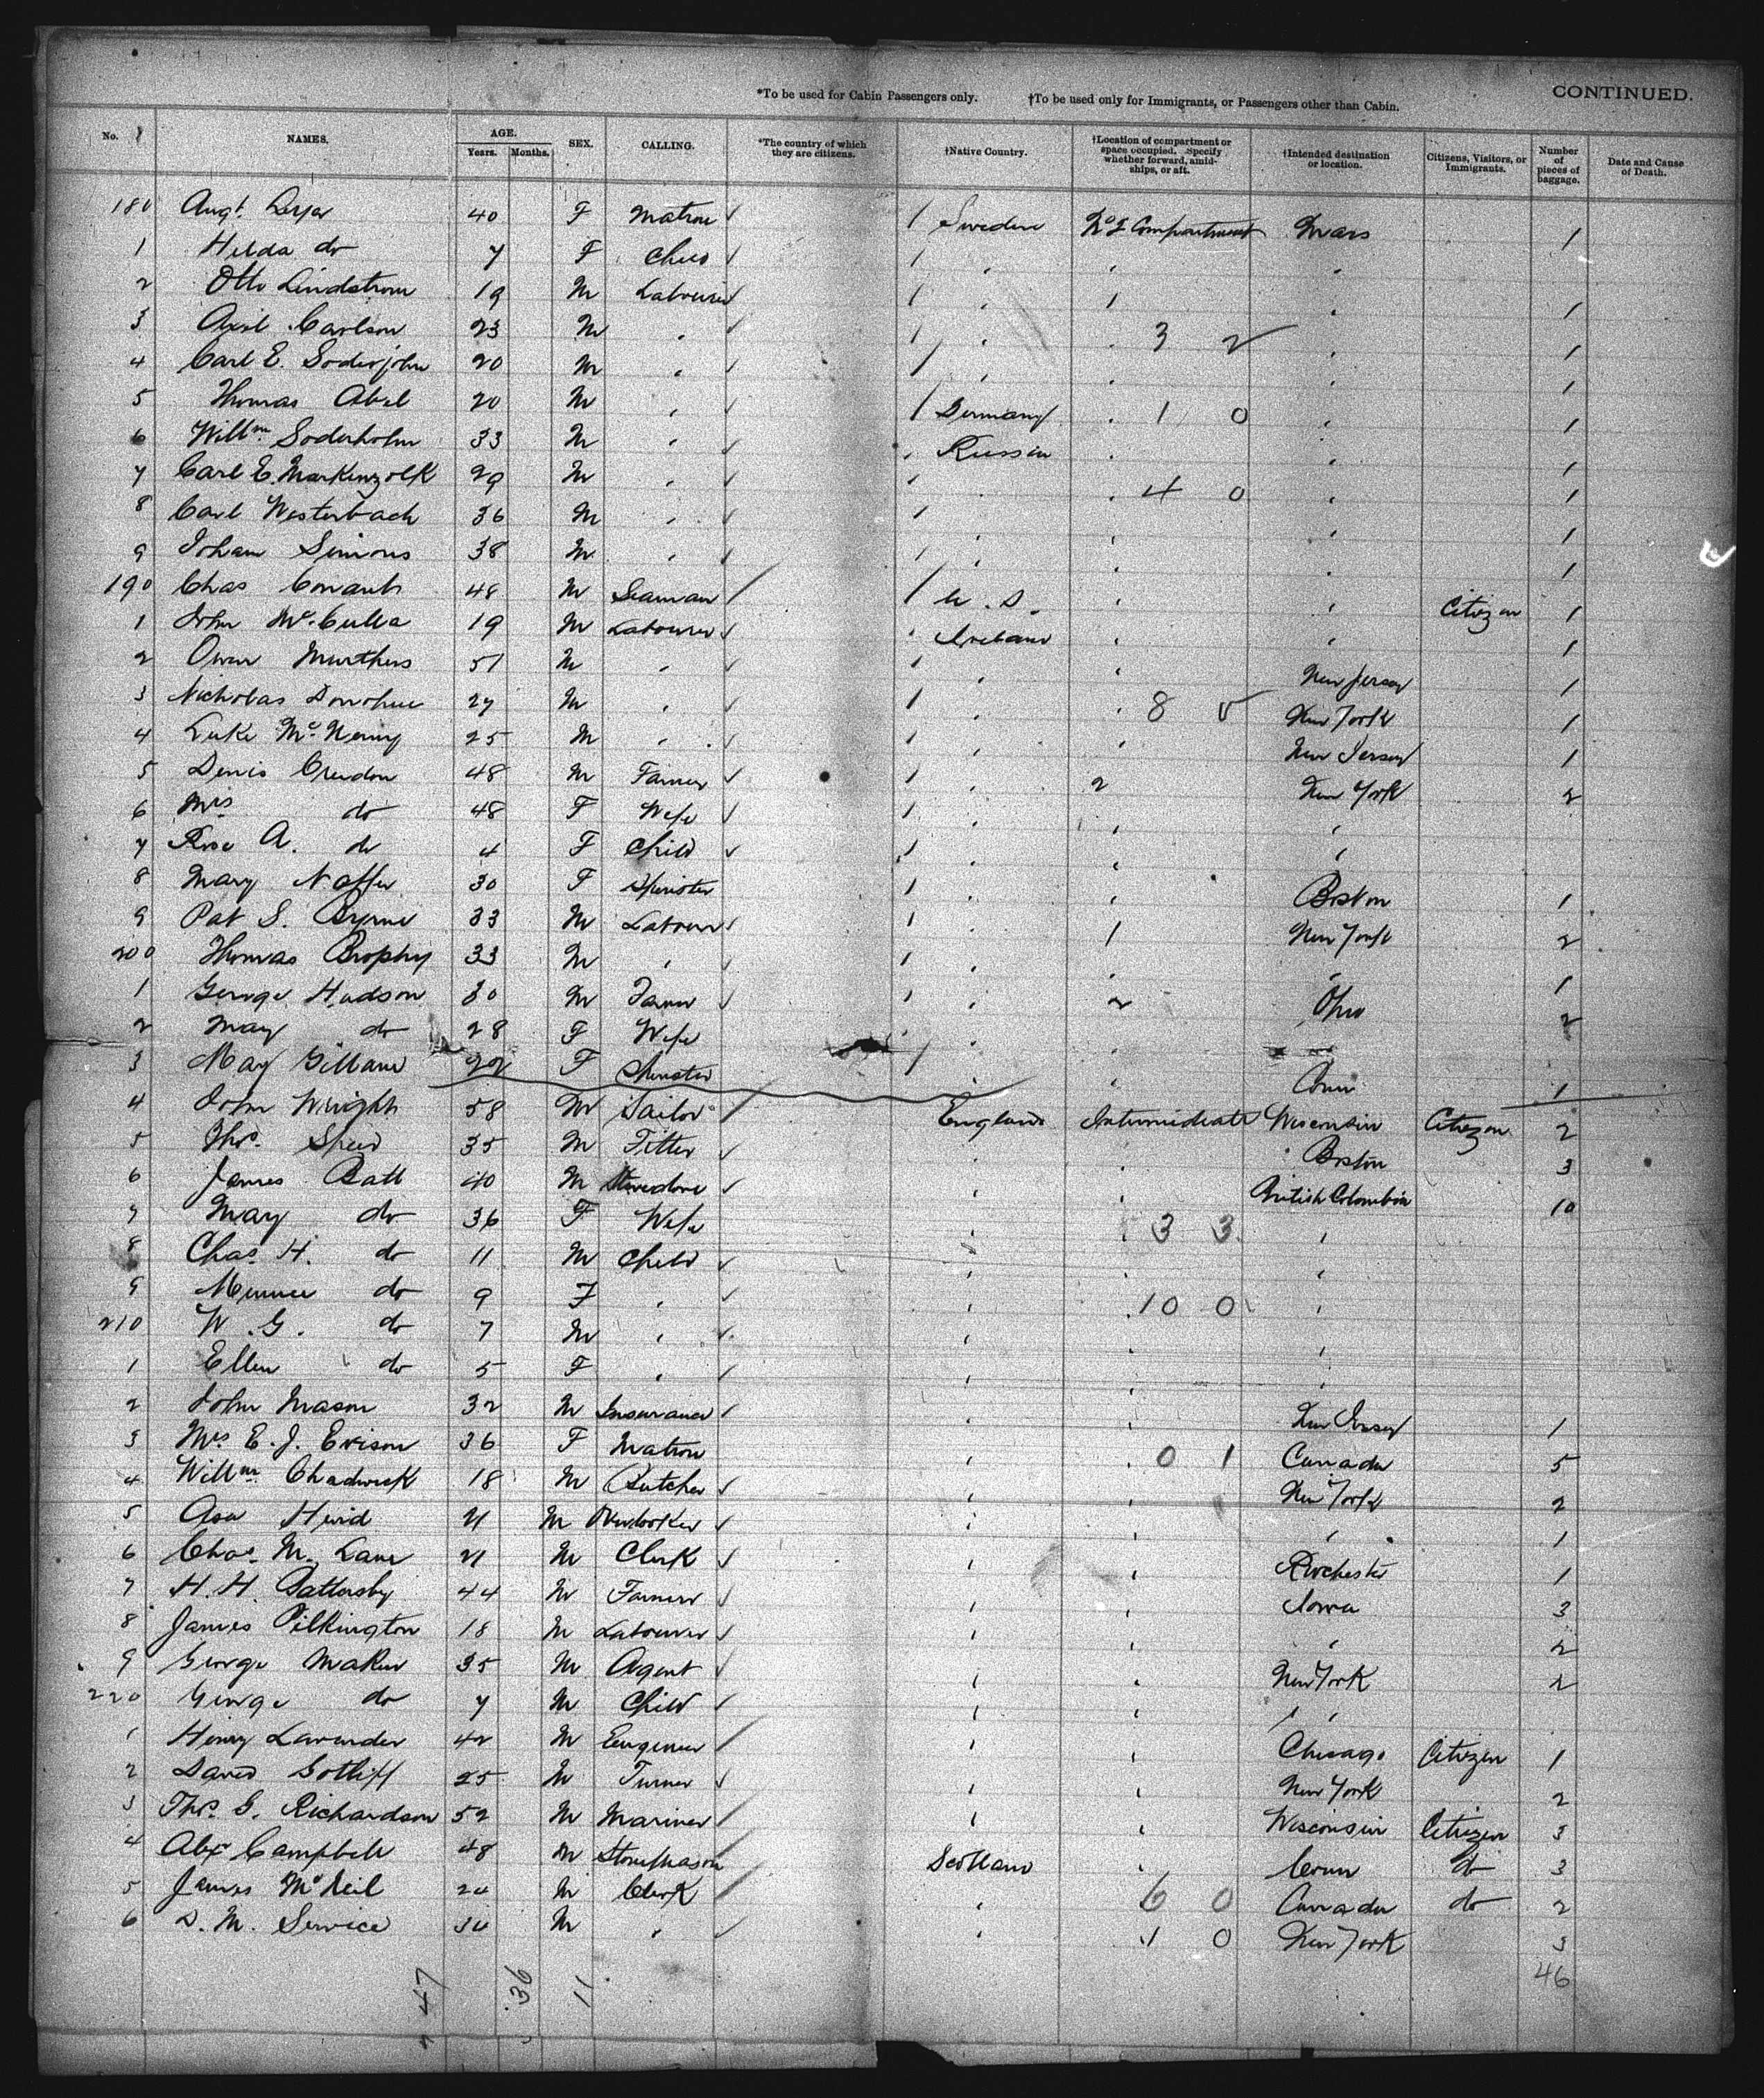 *To be used for Cabin Passengers only. †To be used only for Immigrants, or Passengers other than Cabin. CONTINUED.
No. NAMES. AGE. Years. Months. SEX. CALLING. *The country of which they are citizens. †Native Country. †Location of compartment or space occupied. Specify whether forward, amidships, or aft. †Intended destination or location. Citizens, Visitors, or Immigrants. Number of pieces of baggage. Date and Cause of Death.
180 Augt. 40 F Matron Sweden No 2 Compartment Mass 1
1 Hilda do 7 F Child
2 Otto Lindstrom 19 M Labourer 1 1
3 Axil Carlson 23 M 3 2 1
4 Carl E. Soderjohn 20 M 1
5 Thomas Abel 20 M Germany 1 0 1
6 Willm. Soderholm 33 M Russia 1
7 Carl E. 29 M 4 0 1
8 Carl Westerbach 36 M 1
9 Johan Simons 38 M 1
190 Chas 48 M Seaman U.S. Citizen 1
1 John McCulla 19 M Labourer Ireland 1
2 Owen 51 M New Jersey 1
3 Nicholas Donohue 27 M 8 5 New York 1
4 Luke 25 M New Jersey 1
5 Denis Creedon 48 M Farmer 2 New York 2
6 Mrs do 48 F Wife
7 Rose A. do 4 F Child
8 Mary 30 F Spinster Boston 1
9 Pat S. Byrne 33 M Labourer 1 New York 2
200 Thomas Brophy 33 M 1
1 George Hudson 30 M Farmer 2 Ohio 2
2 Mary do 28 F Wife
3 Mary Gillane 22 F Spinster Conn 1
4 John Wright 58 M Sailor England Intermediate Wisconsin Citizen 2
5 Thos. Speed 35 M Fitter Boston 3
6 James Batt 40 M Stevedore British Colombia 10
7 Mary do 36 F Wife 3 3
8 Chas. H. do 11 M Child
9 Minnie do 9 F 10 0
210 W. G. do 7 M
1 Ellen do 5 F
2 John Mason 32 M Insurance New Jersey 1
3 Mrs E. J. Evison 36 F Matron 0 1 Canada 5
4 Willm Chadwick 18 M Butcher New York 2
5 Asa 21 M Overlooker 1
6 Chas. M. Lane 21 M Clerk Rochester 1
7 H. H. Battersby 44 M Farmer Iowa 3
8 James Pilkington 18 M Labourer 2
9 George Maken 35 M Agent New York 2
220 George do 7 M Child
1 Henry Lavender 42 M Engineer Chicago Citizen 1
2 David Gotliff 25 M Turner New York 2
3 Thos. G. Richardson 52 M Mariner Wisconsin Citizen 3
4 Alex Campbell 48 M Stone Mason Scotland Conn do 3
5 James McNeil 24 M Clerk 6 0 Canada do 2
6 D. M. Service 34 M 1 0 New York 3
47 36 11 46